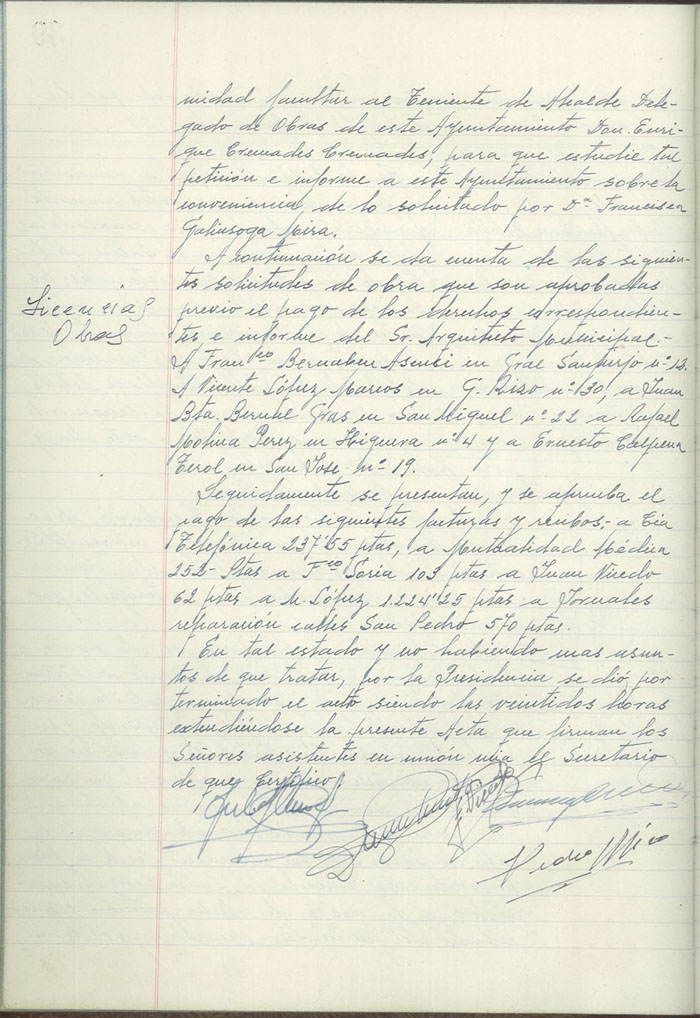 nidad facultar al Teniente de Alcalde Dele-
gado de Obras de este Ayuntamiento Don Enri-
que Cremades Cremades, para que estudie tal
petición e informe a este Ayuntamiento sobre la
conveniencia de lo solicitado por Dª Francisca
Galiusoga Mira.
A continuación se da cuenta de las siguien-
tes solicitudes de obra que son aprobadas
Licencias
Obras
previo el pago de los derechos correspondien-
tes e informe del Sr. Arquitecto Municipal.-
A Franco Bernabeu Asensi en Gral Sanjurjo nº 12.
A Vicente López Marcos en G. Rizo nº 130, a Juan
Bta. Bernal Gras en San Miguel nº 22 a Rafael
Molina Perez en Higuera nº 4 y a Ernesto Calpena
Terol en San Jose nº 19.
Seguidamente se presentan, y se aprueba el
pago de las siguientes facturas y recibos,- a Cia
Telefónica 237'55 ptas, a Mutualidad Médica
252- Ptas a Fco Soria 103 ptas a Juan Vicedo
62 ptas a M. López 1.224'25 ptas a Jornales
reparación calles San Pedro 570 ptas.
En tal estado y no habiendo mas asun-
tos de que tratar, por la Presidencia se dió por
terminado el acto siendo las veintidos horas
extendiéndose la presente Acta que firman los
Señores asistentes en unión mia el Secretario
de que Certifico.
Pedro Mira